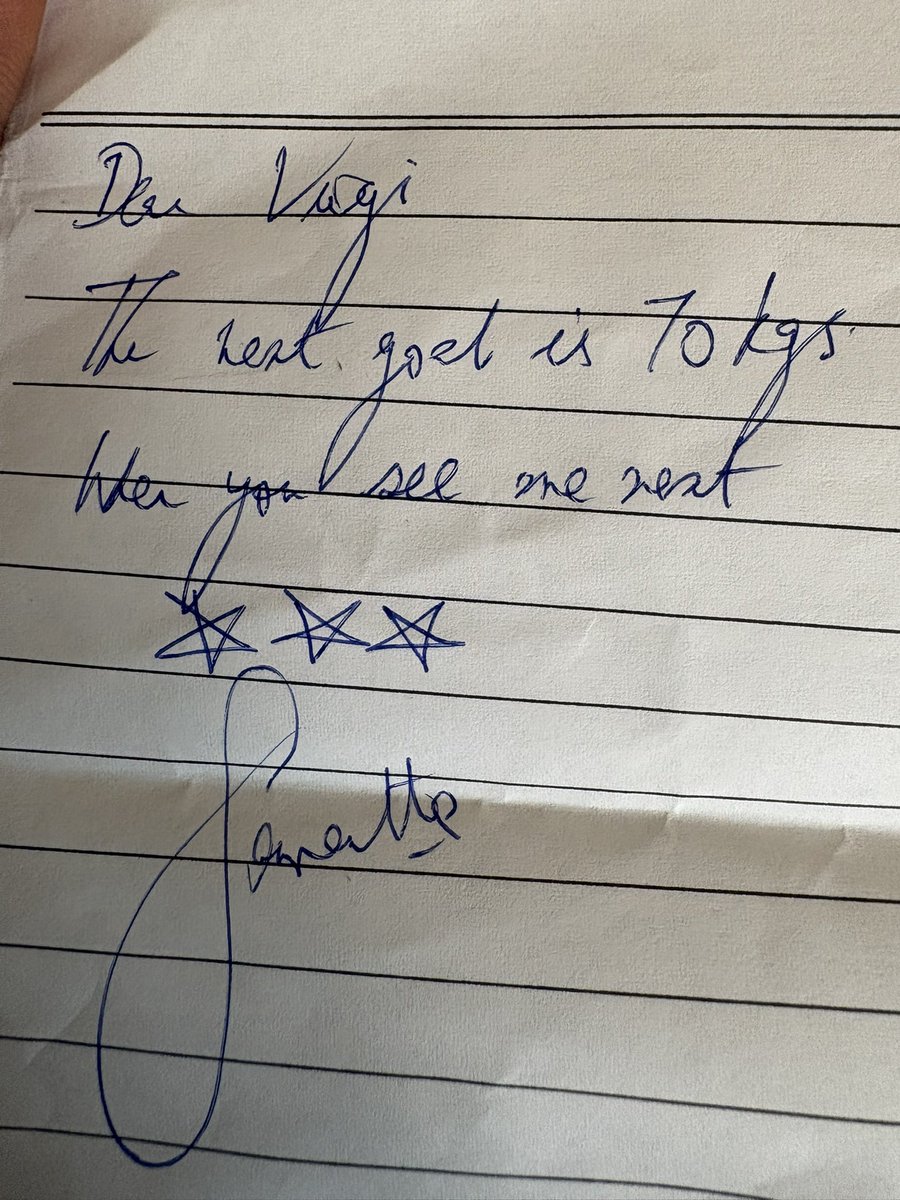 Dear Virgi
The next goal is 70 kgs.
When you see me next
Samantha